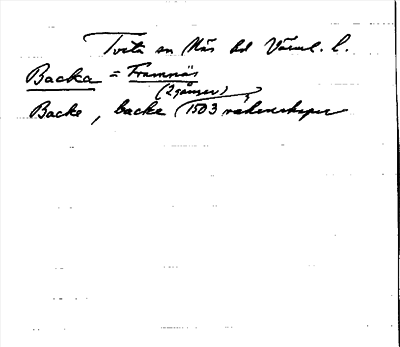 Tveta sn Näs hd Värml. l.
Backa = Framnäs
(2 gånger)
Backe, backe (1503 räkenskaper